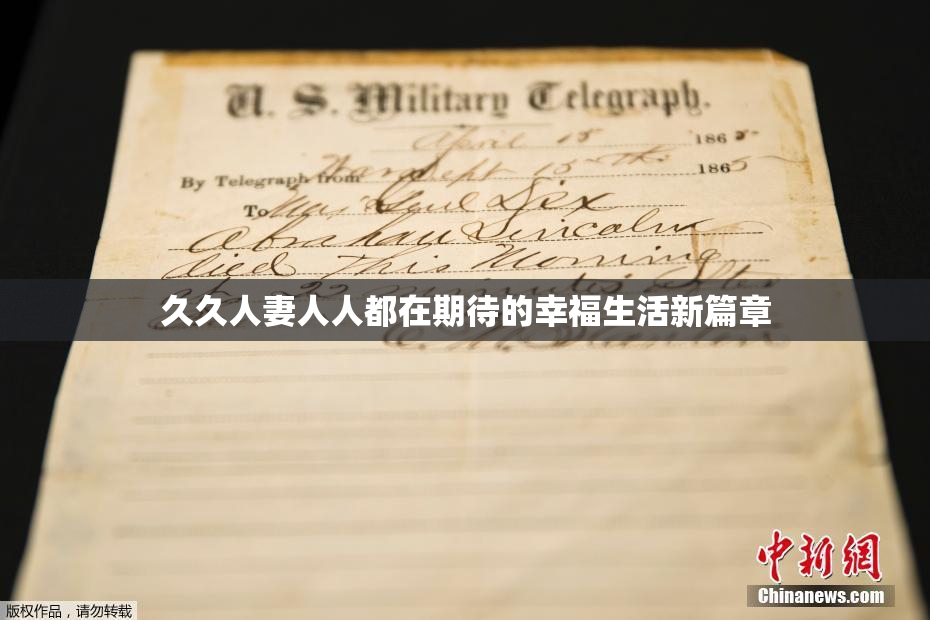 U. S. Military Telegraph.
April 15 1865
By Telegraph from War Dept 15th 1865
To Maj Genl Dix
Abraham Lincoln
died This Morning
at 22 minutes after
久久人妻人人都在期待的幸福生活新篇章
E. M. Stanton
中新網
Chinanews.com
版权作品，请勿转载